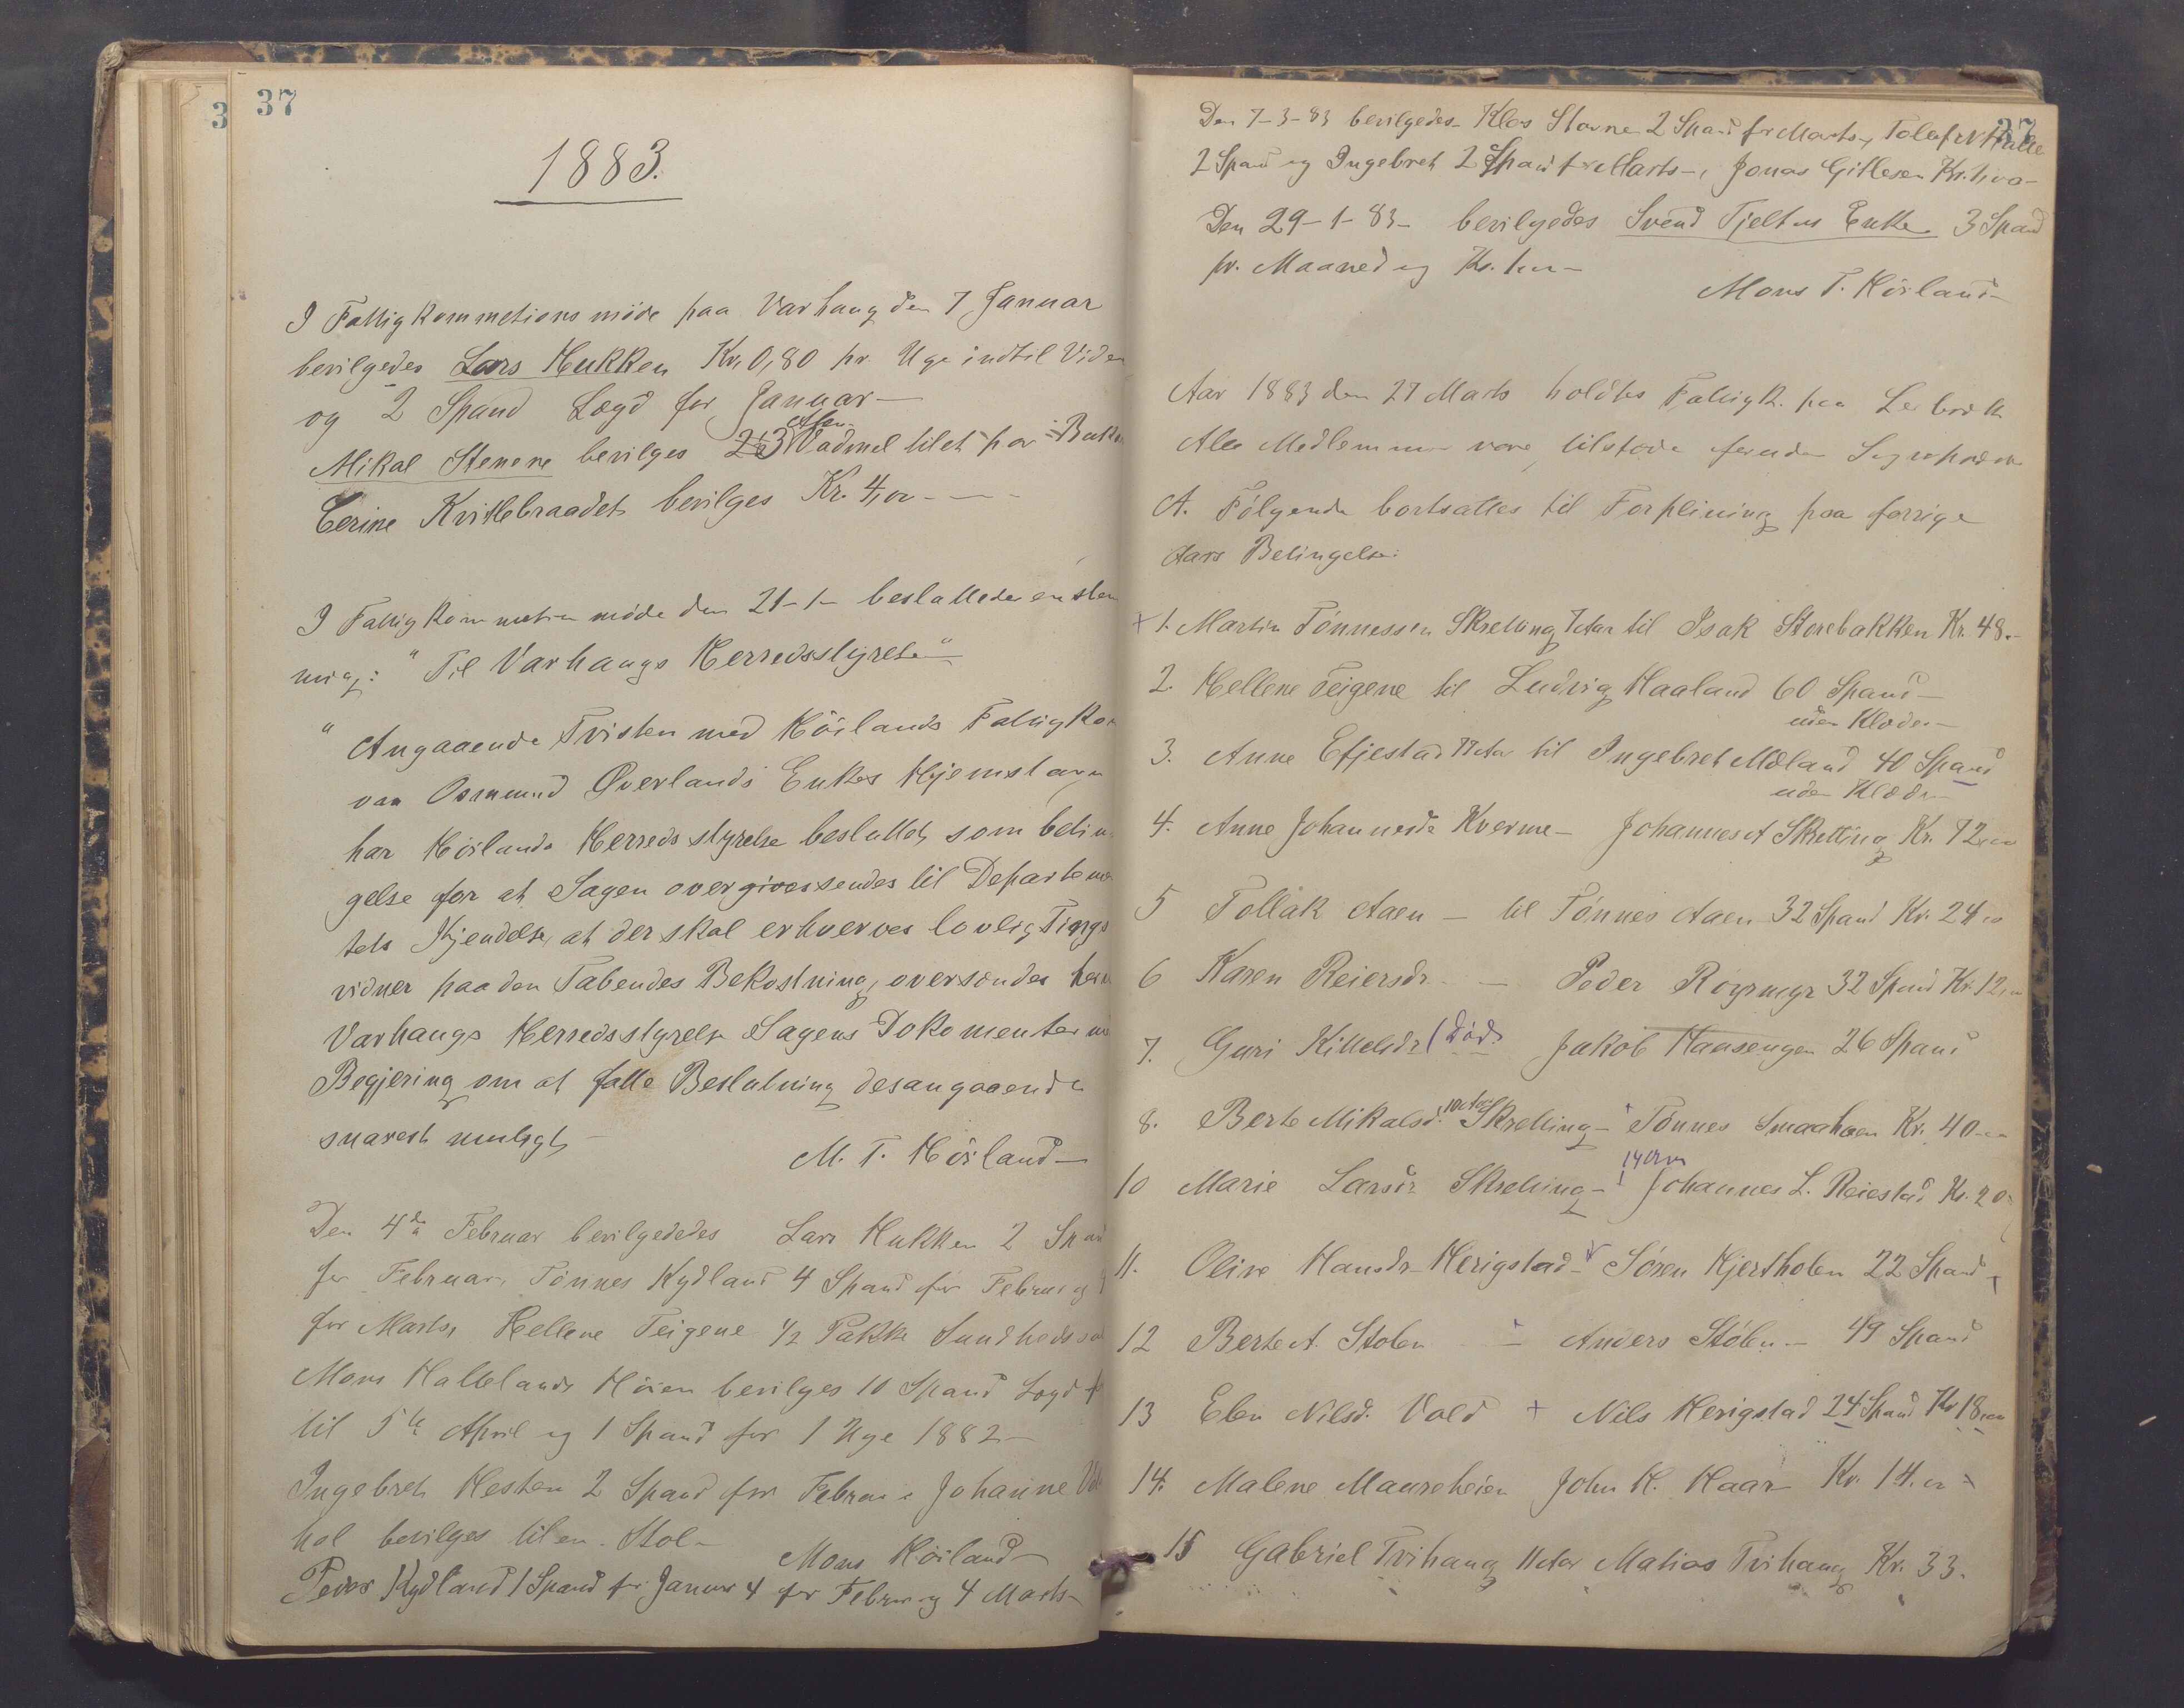 3 37
1883.
I Fattigkommetions möde paa Varhaug den 7 Januar
bevilgedes Lars Hukken Kr. 0,80 pr. Uge indtil Videre
og 2 Spand Lægd for Januar -
Mikal Stenene bevilges 3 Alen Vadmel til et par Buks
Cerine Kvitlebraadet bevilges Kr. 4,00 - -
I Fattigkommetion möde den 21-1- beslattedes enstem
mig: "Til Varhaugs Herredsstyrelse"
" Angaaende Tvisten med Höilands Fattigkom
om Osmund Överlands Enkes Hjemstavn
har Höilands Herredsstyrelse besluttet, som betin
gelse for at Sagen overgives sendes til Departemen
tets Kjendelse, at der skal erhverves lovlig Tings
vidner paa den Tabendes Bekostning, oversendes her
Varhaugs Herredsstyrelse Sagens Dokomenter m
Begjering om at fatte Beslutning desangaaende
snarest muligt -
M. T. Höiland -
Den 4de Februar bevilgededes Lars Hukken 2 Span
for Februar, Tönnes Kydland 4 Spand for Februar og
for Marts, Hellene Teigene 1/2 Pakke Sundhedssal
Mons Hallelands Höien bevilges 10 Spand Lægd f
til 5te April og 1 Spand for 1 Uge 1882 -
Ingebret Hesten 2 Spand for Februar Johanne
hol bevilges til en Stol -
Mons Höiland -
Peder Kydland 1 Spand for Januar 4 for Februar og 4 Marts -
37
Den 7-3-83 bevilgedes Klas Stavne 2 Spand for Marts, Tolef
2 Spand og Ingebret 2 Spand for Marts -, Jonas Gitlesen Kr.
Den 29-1-83 - bevilgedes Svend Tjeltas Enke 3 Spand
pr. Maaned og Kr.
Mons T. Höiland -
Aar 1883 den 27 Marts holdtes Fattigk. paa
Alle Medlemmer vare tilstede foruden Sognepræsten
A. Fölgende bortsattes til Forpleining paa forrige
Aars Betingelse:
+ 1. Martin Tönnessen Skretting 7 Aar til Isak Storebakken Kr. 48.-
2. Hellene Teigene til Ludvig Haaland 60 Spand -
uden Klæder -
3. Anne Efjestad 77 Aar til Ingebret Mæland 40 Spand
uden Klæder
4. Anne Johannesdr Kverme - Johannes A Skretting Kr. 72,00
5 Tollak Aaen - til Tönnes Aaen 32 Spand Kr. 24,00
6 Karen Reiersdr - - Peder Röyrmyr 32 Spand Kr. 12,00
7. Guri Kittelsdr (död) Jakob Haasengen 26 Spand
8. Berte Mikalsd. 10 Aar Skretting - Tönnes Smaahoen Kr. 40
10 Marie Larsdr Skretting - 14 Aar Johannes L. Reiestad Kr. 20
11. Oline Hansdr Herigstad - Sören Hjertholen 22 Spand
12 Berte A. Stölen - Anders Stölen - 49 Spand
13 Elen Nilsd. Vold + Nils Herigstad 24 Spand Kr 18,00
14. Malene Maureheien John H. Haar Kr. 14.00
15 Gabriel Tvihaug 11 Aar Matias Tvihaug Kr. 33.